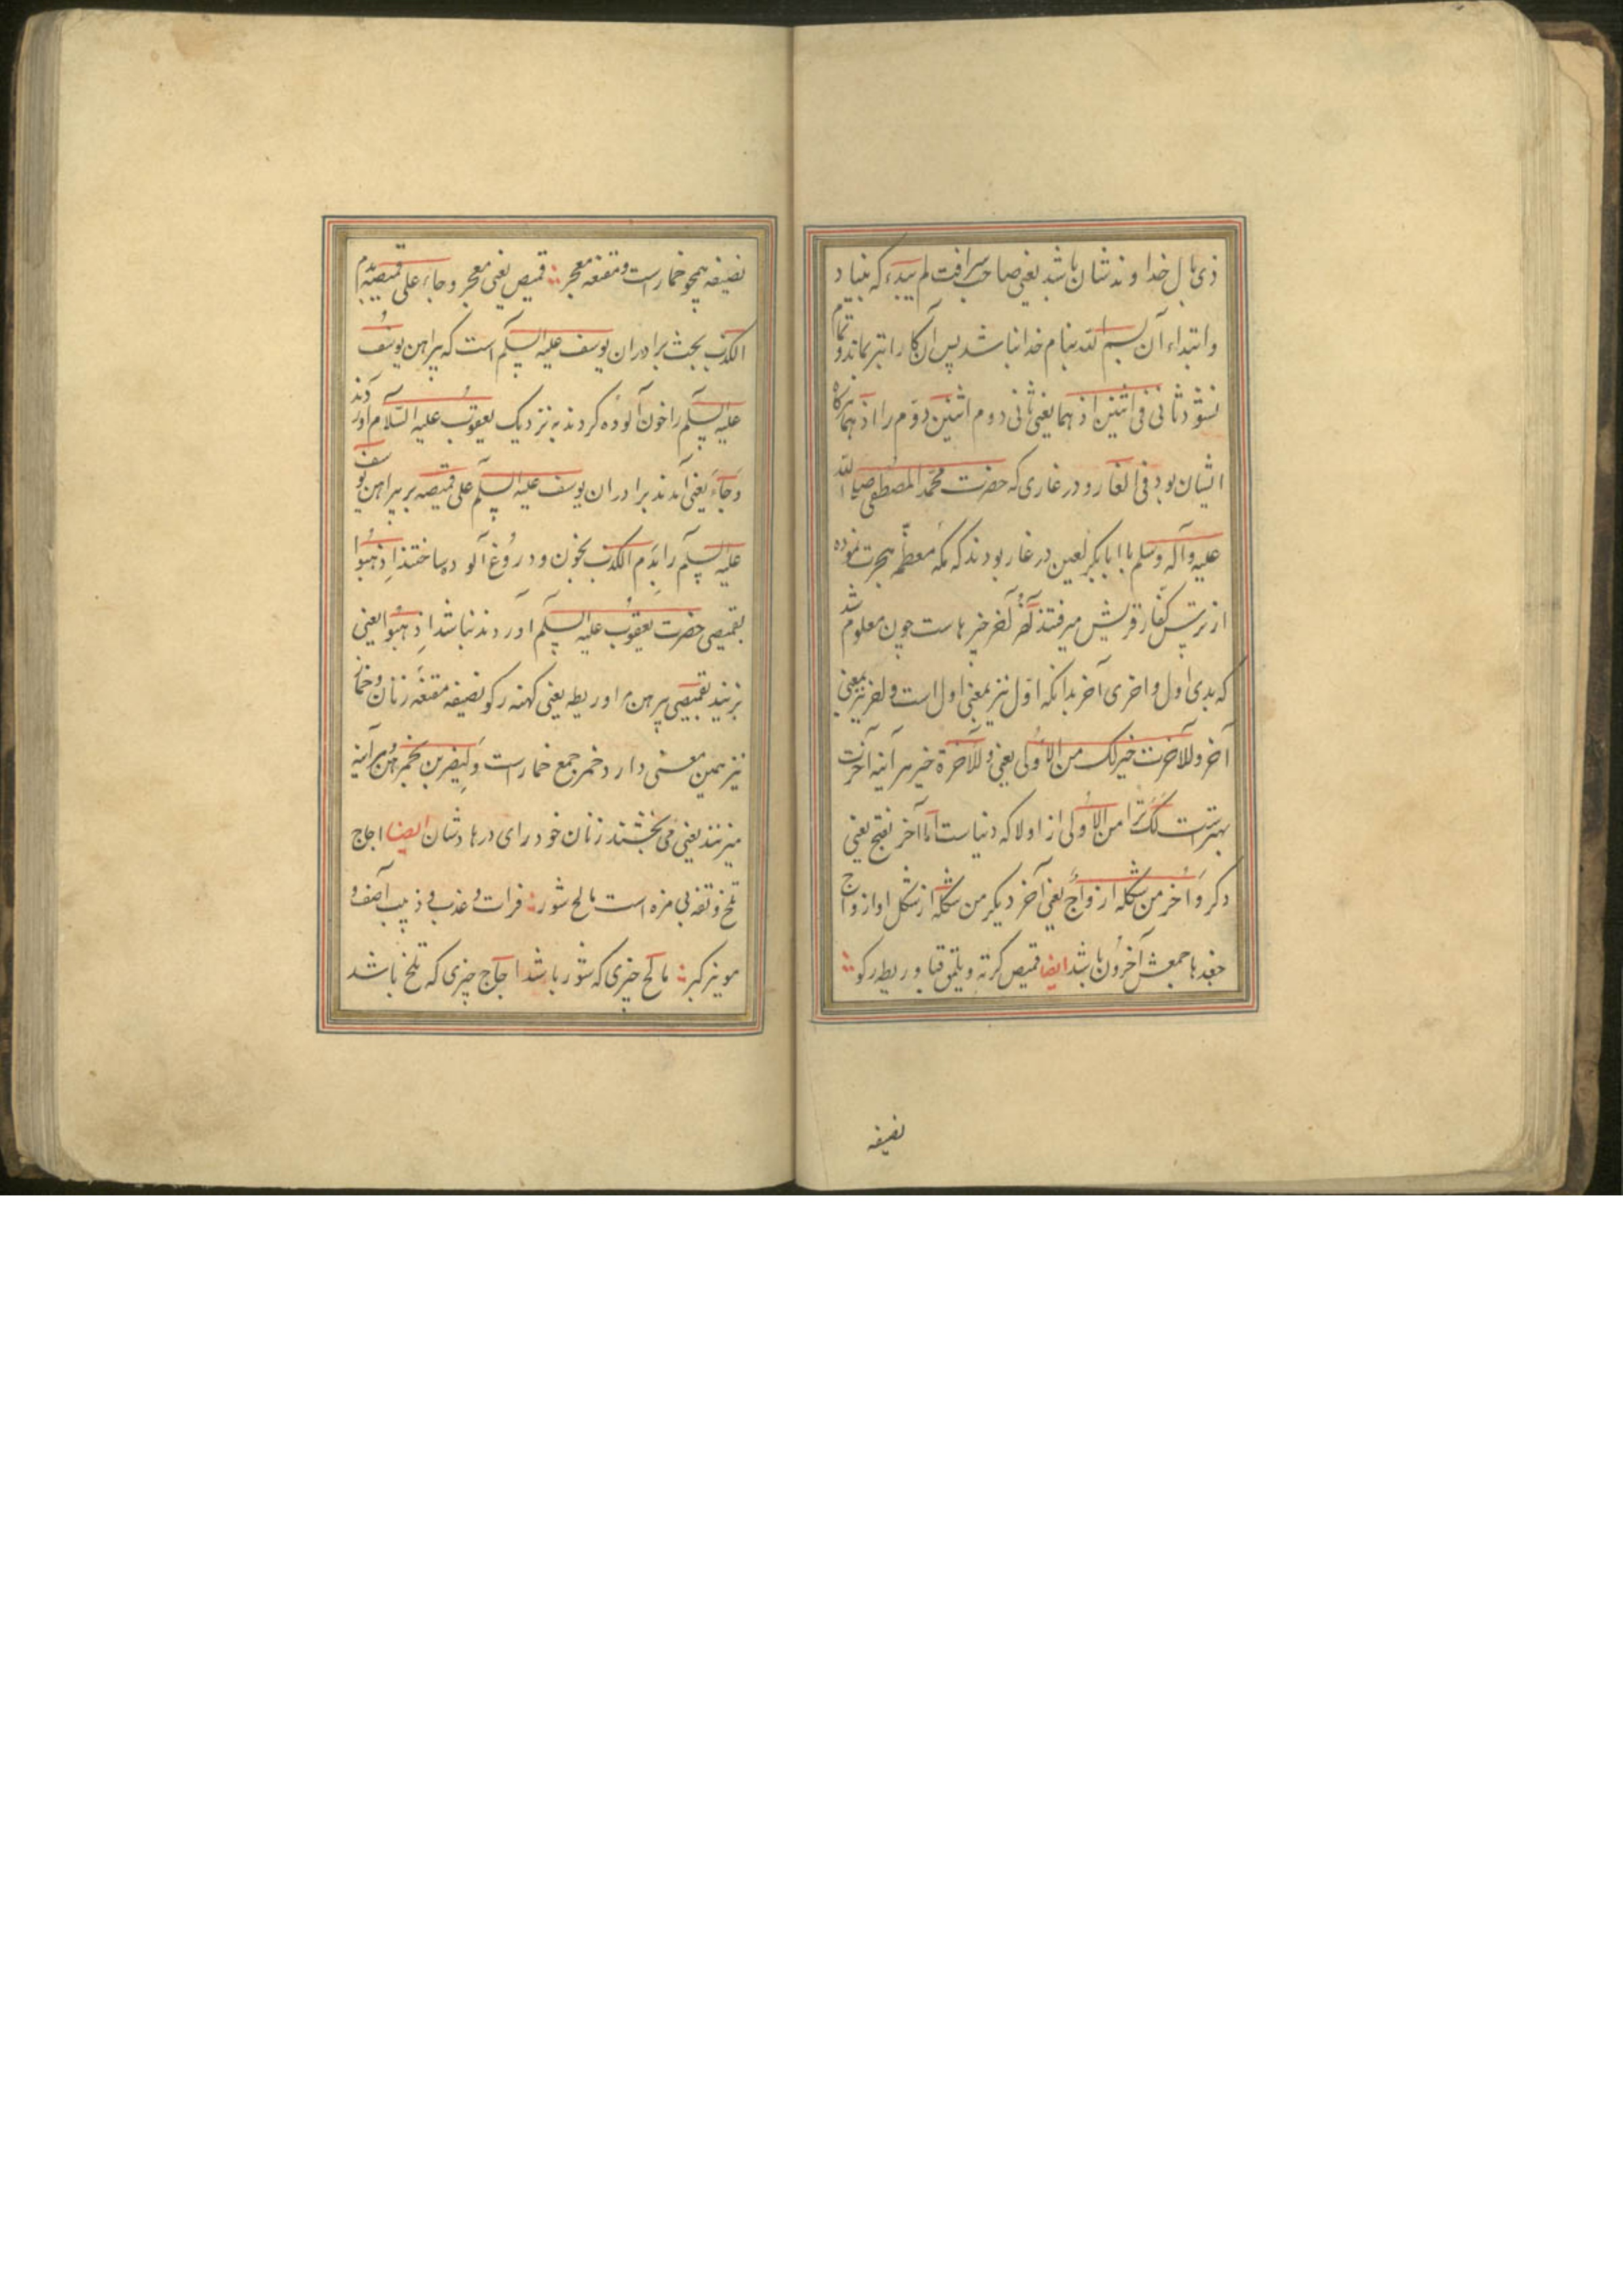 ذی بال خداوند شان باشد یعنی صاحب شرافت لم یبدء که بنیاد
و ابتداء آن بسم الله بنام خدا نباشد پس آن کار ابتر بماند و تمام
نشود ثانی فی اثنین اذ هما یعنی ثانی دوم اثنین دوم را اذ هما هرگاه
ایشان بود فی الغار و در غاری که حضرت محمد المصطفی صلی الله
علیه و آله وسلم با ابابکر لعین در غار بودند که مکه معظمه هجرت نموده
از ترس کفار قریش میرفتند آخر خیرهاست چون معلوم شد
که بدی اول و اخری آخر بدانکه اول نیز بمعنی اول است و لخر نیز بمعنی
آخر وللآخرت خیر لک من الاولی یعنی وللآخرة خیر هر آینه آخرت
بهترست لک ترا من الاولی از اولا که دنیاست اما آخر بفتح یعنی
دکر و اخر من شکله ازواج یعنی آخر دیکر من شکله از شکل او ازواج
جغدها جمعش آخرون باشد ایضا قمیص کرته و یلمق قبا و ریطه رکو
نصیفه
نصیفه همچو خمارست و مقنعه معجر قمیص یعنی معجر و جاء علی قمیصه بدم
الکذب بحث برادران یوسف علیه السلم است که پیراهن یوسف
علیه السلم را خون آلوده کردند به نزدیک یعقوب علیه السلام آوردند
و جاء یعنی آمدند برادران یوسف علیه السلم علی قمیصه بر پیراهن یوسف
علیه السلم را بدم الکذب بخون و دروغ آلوده ساختند اذهبوا
بقمیصی حضرت یعقوب علیه السلم اوردند نباشد اذهبوا یعنی
بزنید بقمیصی پیرهن مرا و ریطه یعنی کهنه رکو نصیفه مقنعه زنان و خمار
نیز همین معنی دارد خمر جمع خمارست ولیضربن بخمرهن هر آینه
میزنند یعنی می بخشند زنان خود رای درهاشان ایضا اجاج
تلخ و تفه بی مزه است مالح شور فرات و عذب و ذبیب آصف و
مویز کبر مالح چیزی که شور باشد اجاج چیزی که تلخ باشد